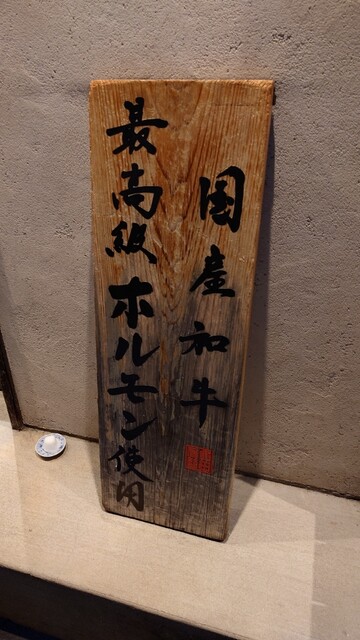 国産和牛
最高級ホルモン使用